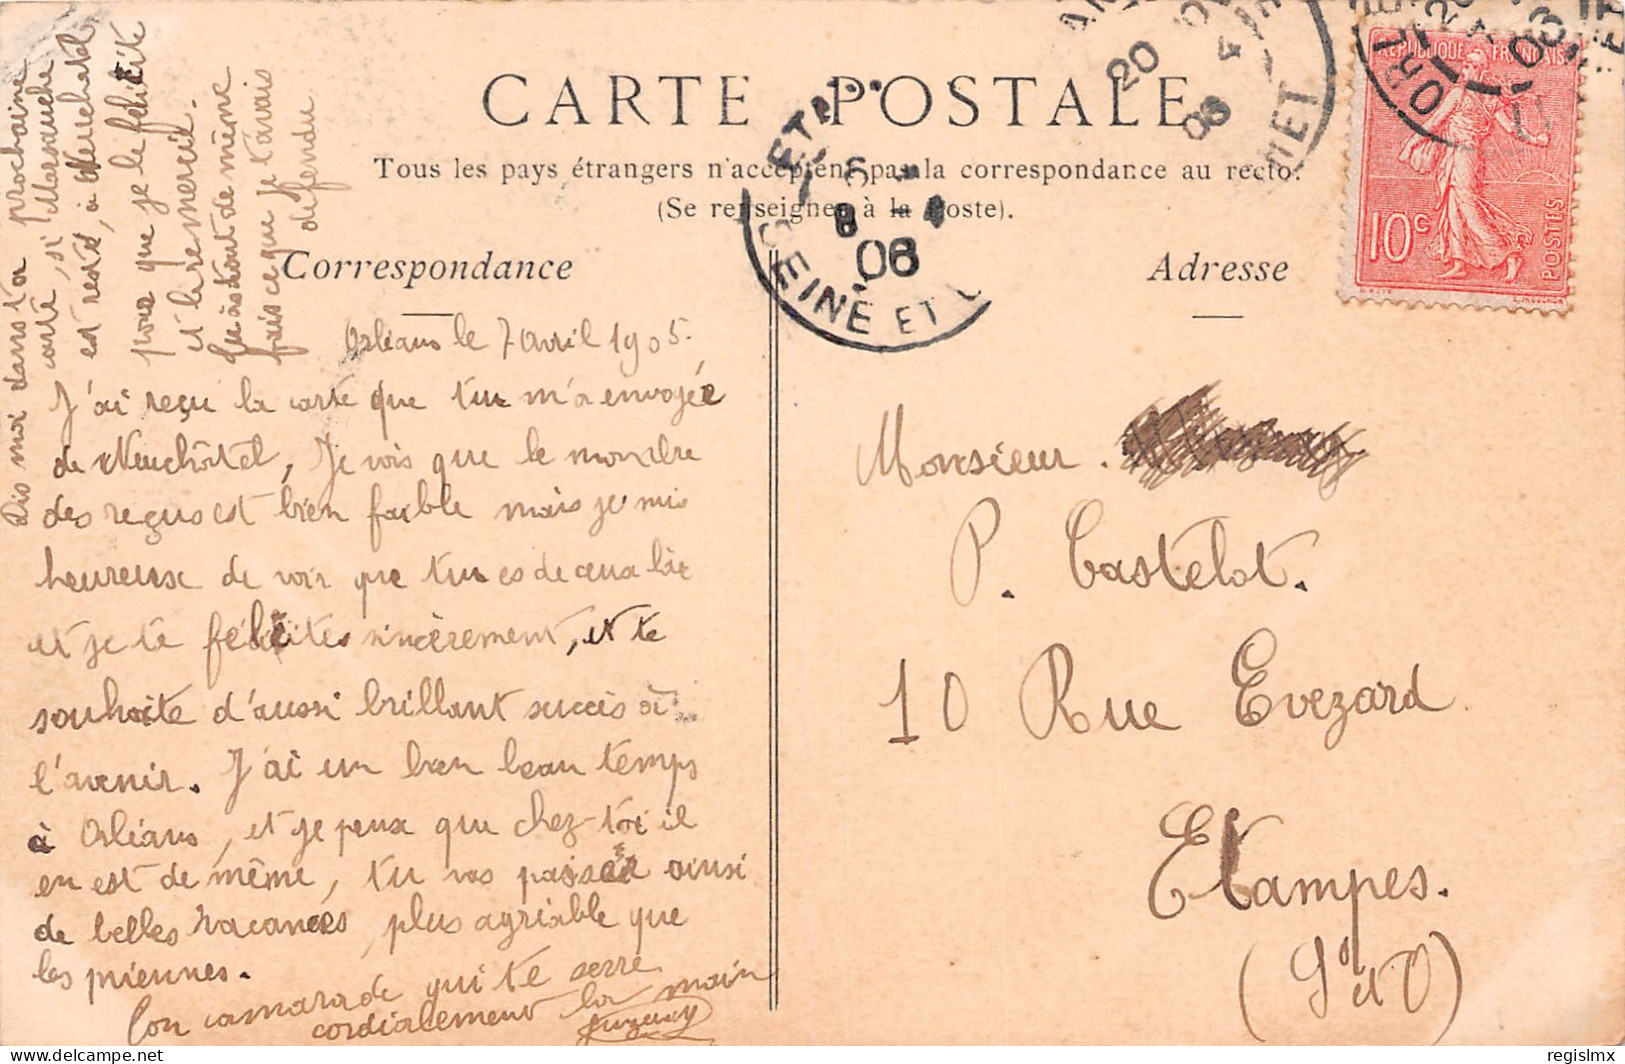 CARTE POSTALE
Tous les pays étrangers n'acceptent pas la correspondance au recto.
(Se renseigner à la Poste).
Correspondance
Adresse
REPUBLIQUE FRANCAISE
10c
POSTES
20
06
ETAMPES
8 - 4
06
SEINE ET
Orléans le 7 Avril 1905.
J'ai reçu la carte que tu m'a envoyée
de Neuchâtel, Je vois que le nombre
des reçus est bien faible mais je suis
heureuse de voir que tu es de ceux là
et je te félicites sincèrement, et te
souhaite d'aussi brillant succès à
l'avenir. J'ai un bien beau temps
à Orléans, et je peux que chez-toi il
en est de même, tu vas passer ainsi
de belles vacances, plus agriable que
les miennes.
Ton camarade qui te serre
cordialement la main
Dis moi dans ta prochaine
carte, si Marouche
est resté, à Neuchatel
pour que je le félicite
et la remercie.
tu as tout de même
fais ce que je t'avais
défendu
Monsieur
P. Castelot.
10 Rue Evezard
Etampes.
(S et O)